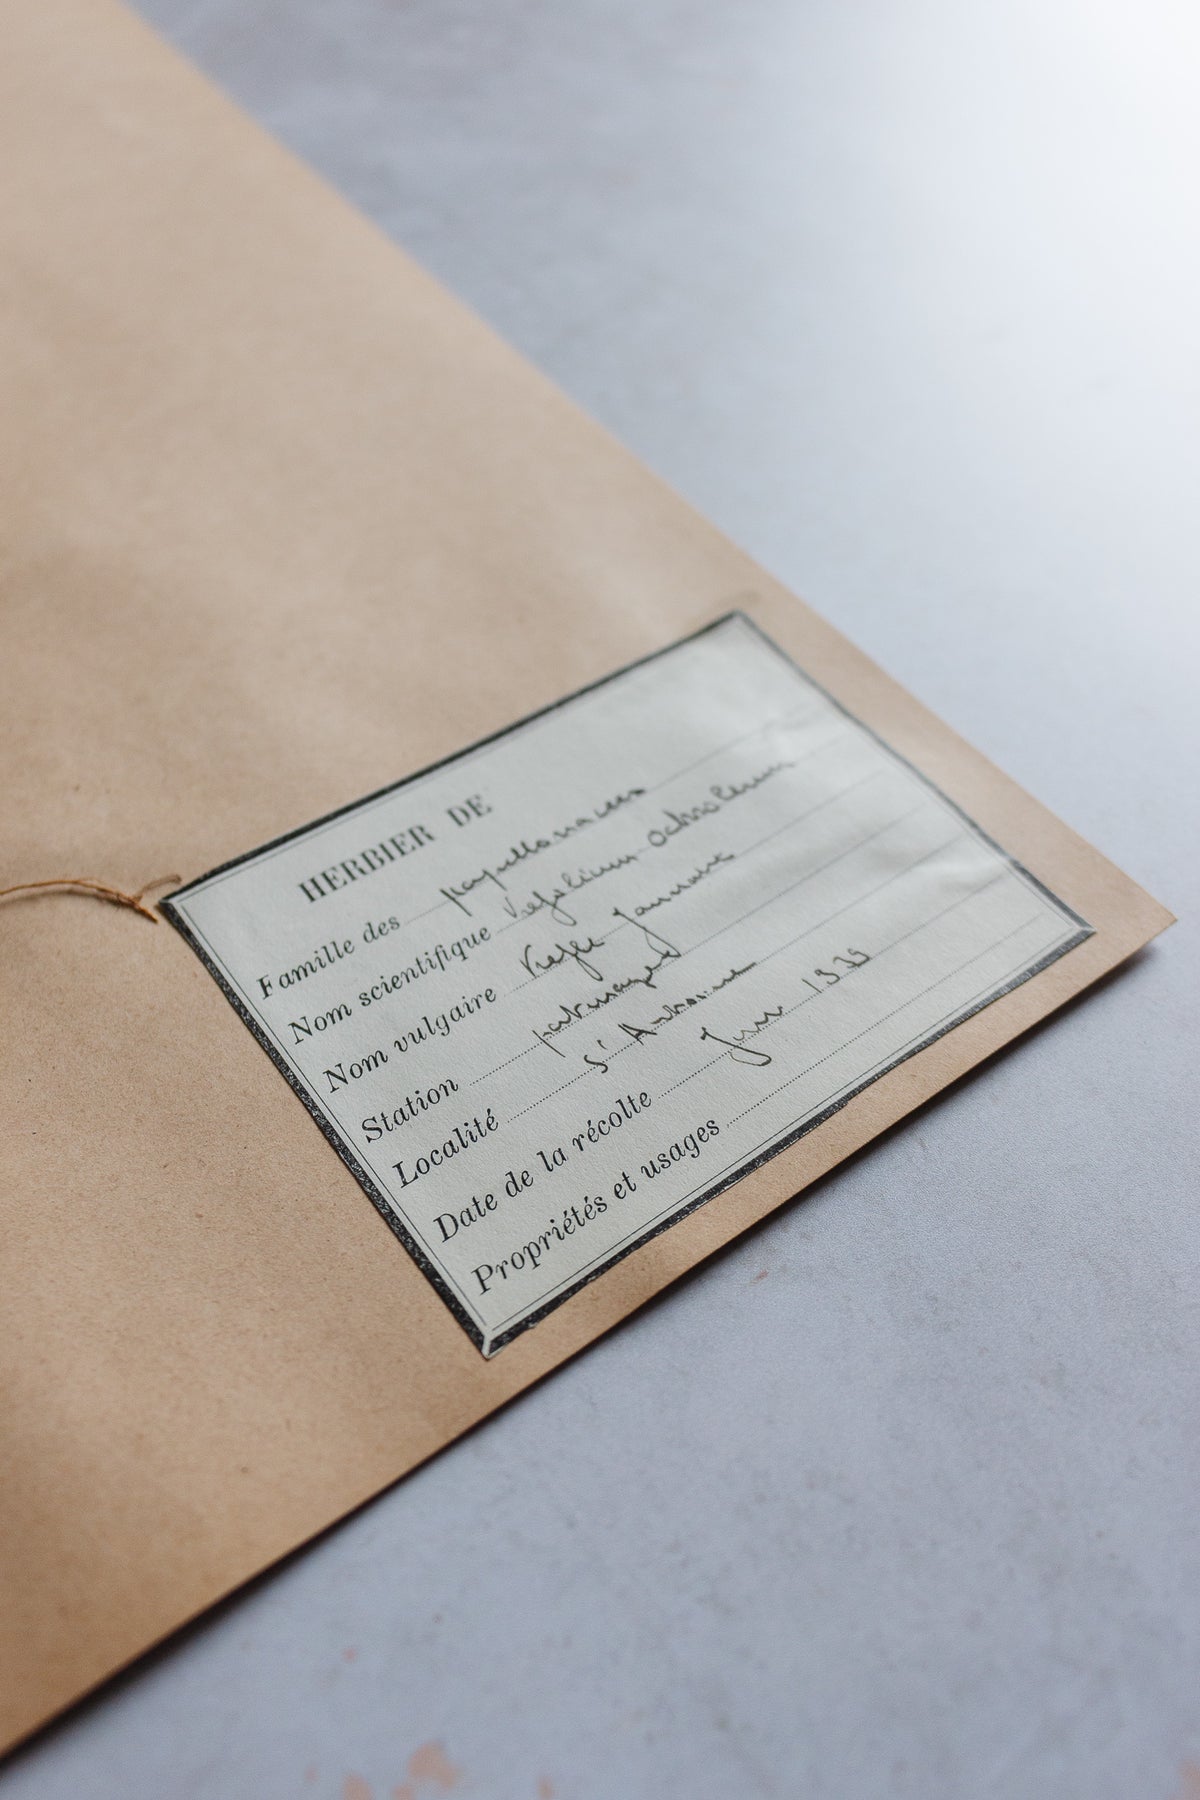 HERBIER DE
Famille des papilionacées
Nom scientifique Trifolium ochroleucum
Nom vulgaire Trefle Jaunatre
Station paturages
Localité St Antoine
Date de la récolte Juin 1933
Propriétés et usages